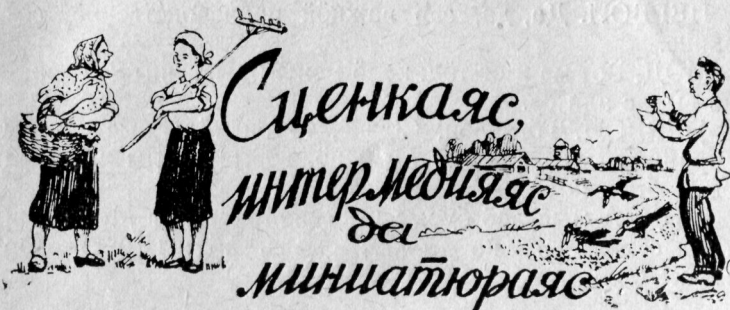 Сценкаяс,
интермедияяс
да
миниатюраяс